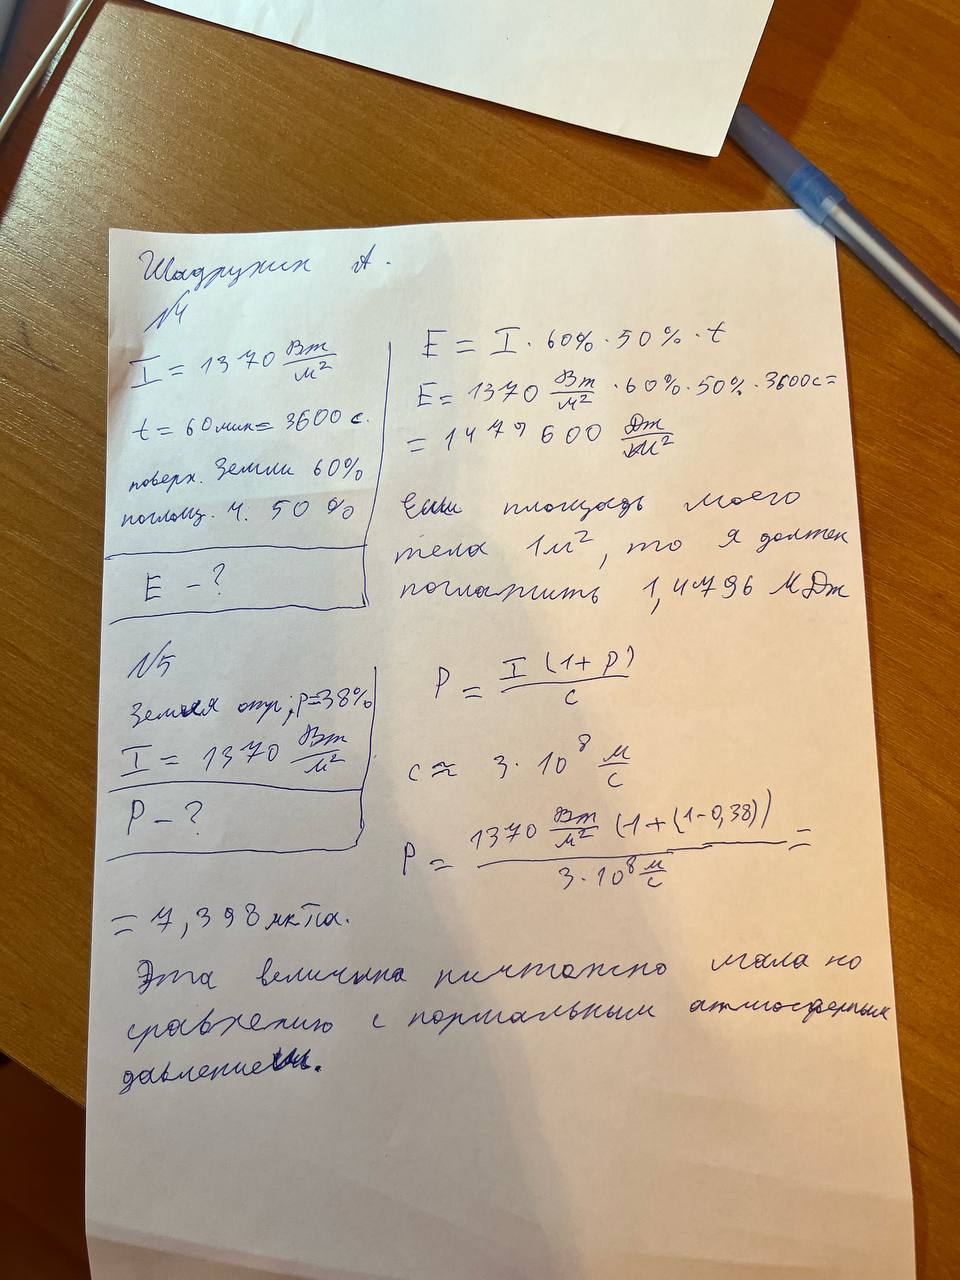 Шадрухин А.
№4
I = 1370 Вт/м²
t = 60 мин = 3600 с.
поверх. Земли 60%
поглощ. ч. 50 %
E - ?
E = I · 60% · 50% · t
E = 1370 Вт/м² · 60% · 50% · 3600с =
= 1479600 Дж/м²
Если площадь моего
тела 1м², то я должен
поглатить 1,4796 МДж
№5
Земля отр; p=38%
I = 1370 Вт/м²
P - ?
P = I (1+p)/c
c ≈ 3·10⁸ м/с
P = 1370 Вт/м² (1+(1-0,38))/3·10⁸ м/с =
= 7,398 мкПа.
Эта величина ничтожно мала по
сравнению с нормальным атмосферным
давлением.